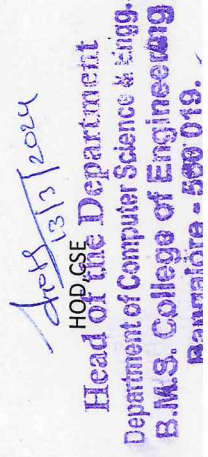 13/3/2024
HOD.CSE
Head of the Department
Department of Computer Science & Engg.
B.M.S. College of Engineering
Bangalore - 560 019.